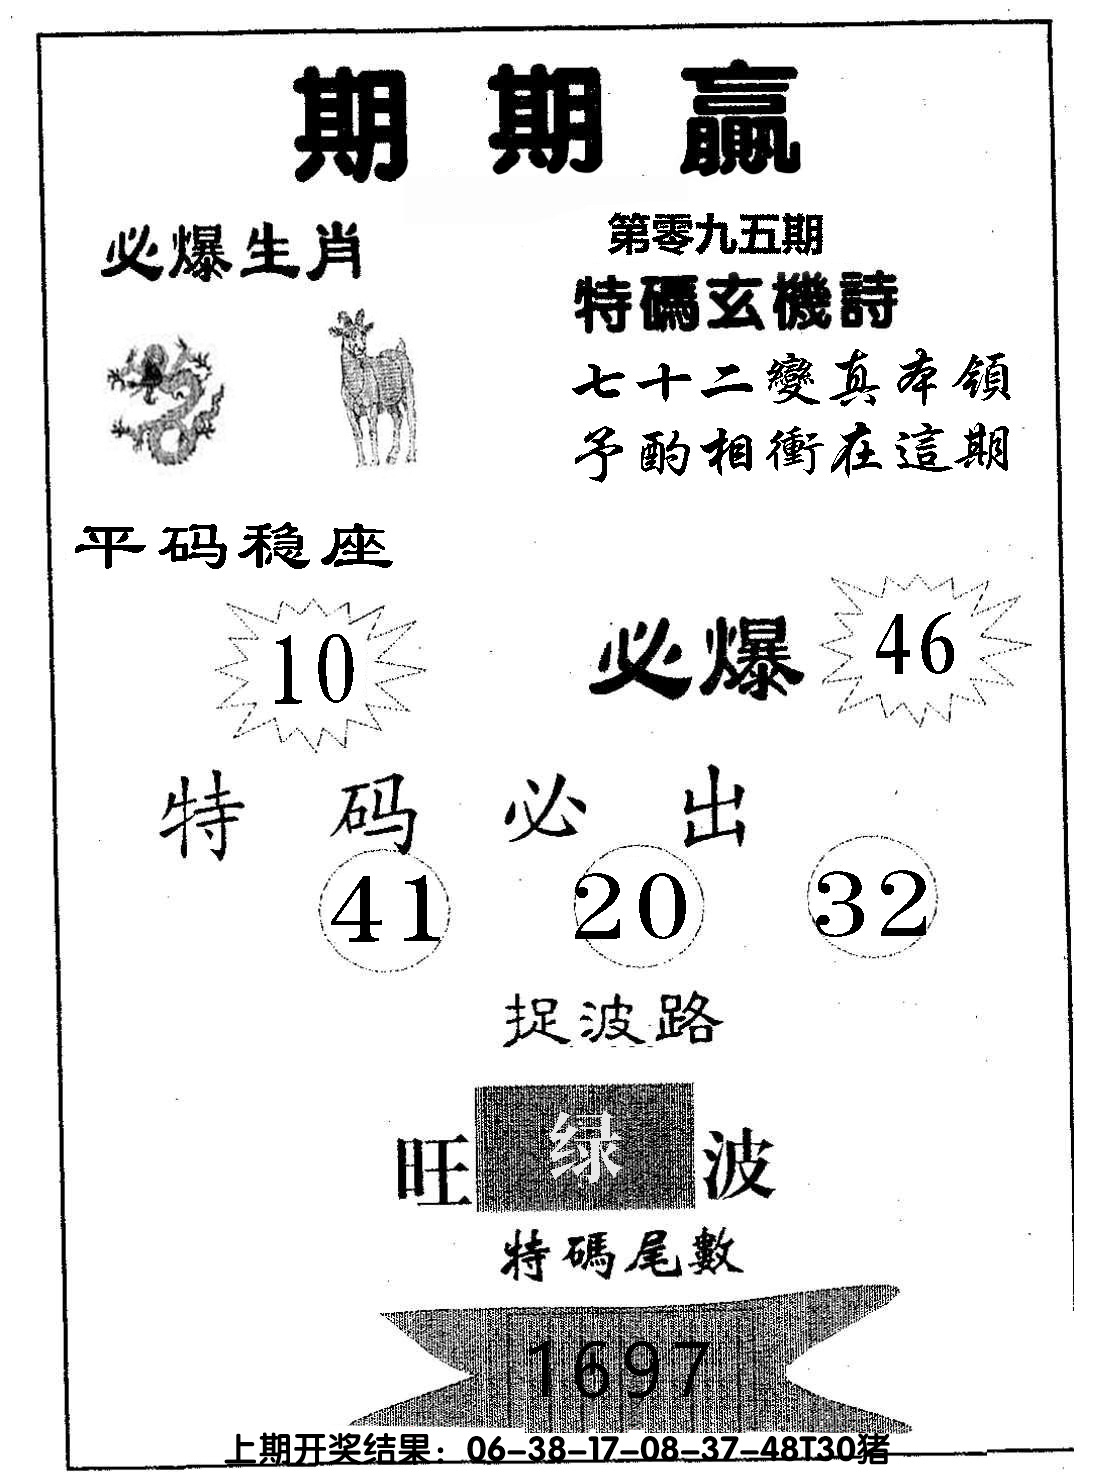 期期赢
必爆生肖
第零九五期
特碼玄機詩
七十二變真本領
予酌相衝在這期
平码稳座
10
必爆
46
特码必出
41 20 32
捉波路
旺 绿 波
特碼尾數
1697
上期开奖结果：06-38-17-08-37-48T30猪